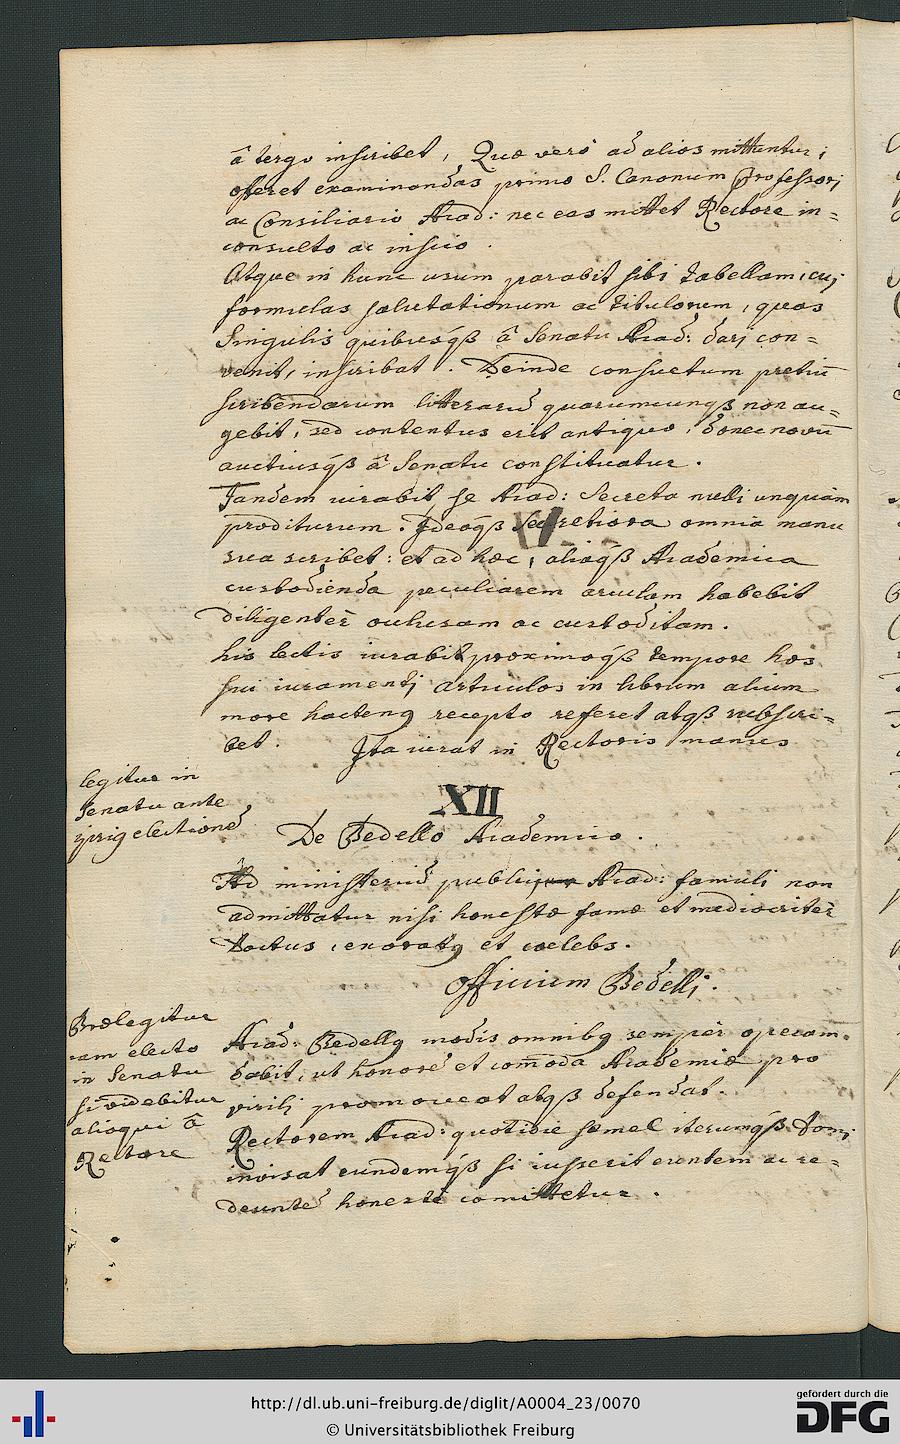 â tergo inscribet, Quæ verò ad alios mittantur,
offeret examinandas primo S. Canonum Professori
ac Consiliario Acad: nec eas mittet Rectore in=
consulto ac inscio.
Atque in hunc usum parabit sibi tabellam, cuj
formulas salutationum ac titulorum, quas
Singulis quibusqß â Senatu Acad: darj con=
venit, inscribat. Deinde consuetum pretiū
scribendarum litterarū quarumcunqß non au=
gebit, sed contentus erit antiquo, donec novū
auctiusqß â Senatu constituatur.
Tandem iurabit se Acad: Secreta nulli unquam
proditurum. Jdeoqß Secretiora omnia manu
sua scribet: et ad hæc, aliaqß Academica
custodienda peculiarem arculam habebit
diligentèr oclusam ac custoditam.
his lectis iurabit proximoqß tempore hos
sui iuramentj articulos in librum alium
more hactenq recepto referet atqß subscri=
bet. Jta iurat in Rectoris manus
legitur in
Senatu ante
iprig electionē
XII
De Bedello Academico.
Ad ministeriū Acad: famuli non
admittatur nisi honestæ famæ et mediocritèr
doctus, enoratq et cælebs.
Officium Bedellj.
Prælegitur
iam electo
in Senatu
si videbitur
alioqui â
Rectore
Acad: Bedellq modis omnibq sempèr operam
dabit, ut honorē et com̄oda Academiæ pro
virilj promoveat atqß defendat.
Rectorem Acad: quotidie semel iterumqß domj
invisat eundemqß si iusserit euntem ac re=
deuntē honestè comittetur.
http://dl.ub.uni-freiburg.de/diglit/A0004_23/0070
© Universitätsbibliothek Freiburg
gefördert durch die
DFG